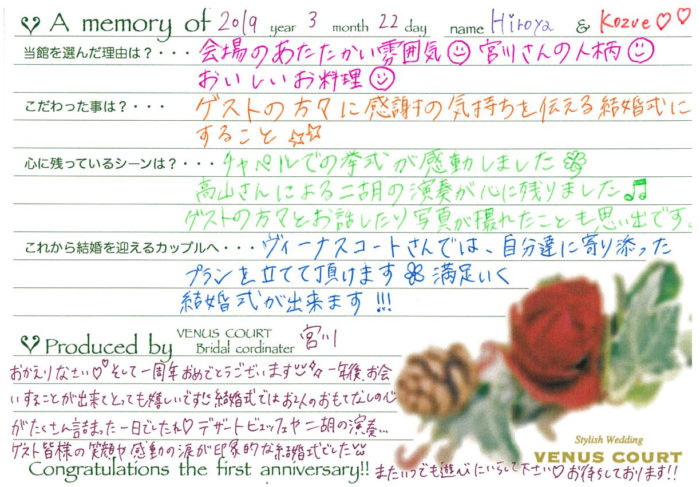 A memory of 2019 year 3 month 22 day name Hiroya & Kozue♡♡
当館を選んだ理由は？・・・会場のあたたかい雰囲気☺ 宮川さんの人柄☺
おいしいお料理☺
こだわった事は？・・・ゲストの方々に感謝の気持ちを伝える結婚式に
すること☆☆
心に残っているシーンは？・・・チャペルでの挙式が感動しました
高山さんによる二胡の演奏が心に残りました♫
ゲストの方々とお話したり写真が撮れたことも思い出です。
これから結婚を迎えるカップルへ・・・ヴィーナスコートさんでは、自分達に寄り添った
プランを立てて頂けます 満足いく
結婚式が出来ます!!!
Produced by VENUS COURT
Bridal cordinater 宮川
おかえりなさい♡♡そして一周年おめでとうございます 一年後、お会
いすることが出来てとっても嬉しいです 結婚式ではお2人のおもてなしの心
がたくさん詰まった一日でしたね♡ デザートビュッフェや二胡の演奏…
ゲスト皆様の笑顔や感動の涙が印象的な結婚式でした
Congratulations the first anniversary!! またいつでも遊びにいらして下さい♡お待ちしております!!
Stylish Wedding
VENUS COURT